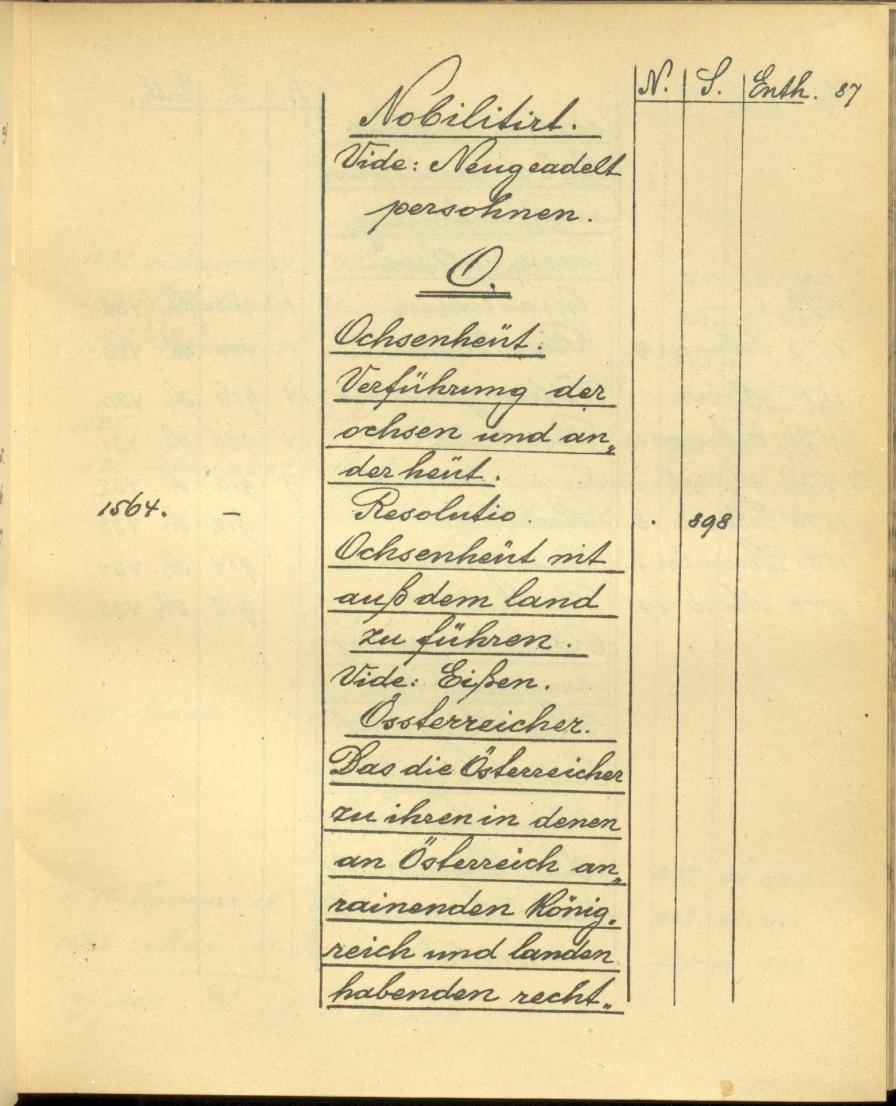 N. S. Enth. 87
Nobilitirt.
Vide: Neugeadelt
persohnen.
O.
Ochsenheüt.
Verführung der
ochsen und an„
der heüt.
1564. — Resolutio . 898
Ochsenheüt nit
auß dem land
zu führen.
Vide: Eißen.
Össterreicher.
Das die Österreicher
zu ihren in denen
an Österreich an„
rainenden König„
reich und landen
habenden recht„